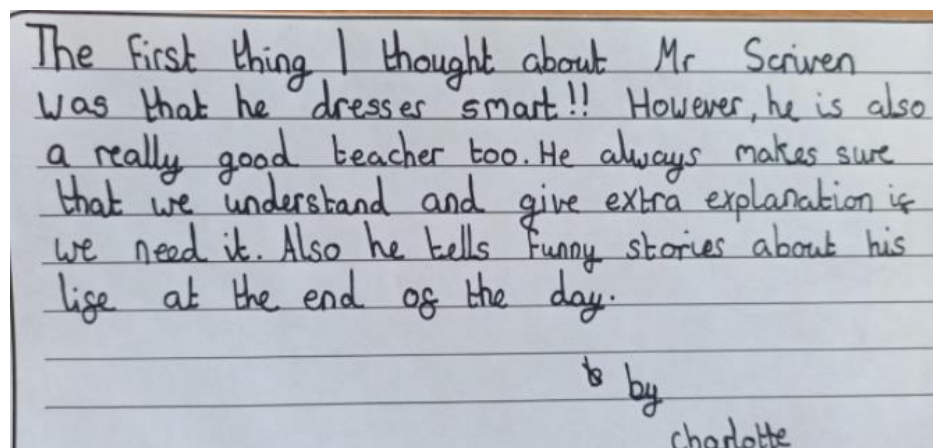 The first thing I thought about Mr Scriven
was that he dresses smart!! However, he is also
a really good teacher too. He always makes sure
that we understand and give extra explanation if
we need it. Also he tells funny stories about his
life at the end of the day.
by
charlotte